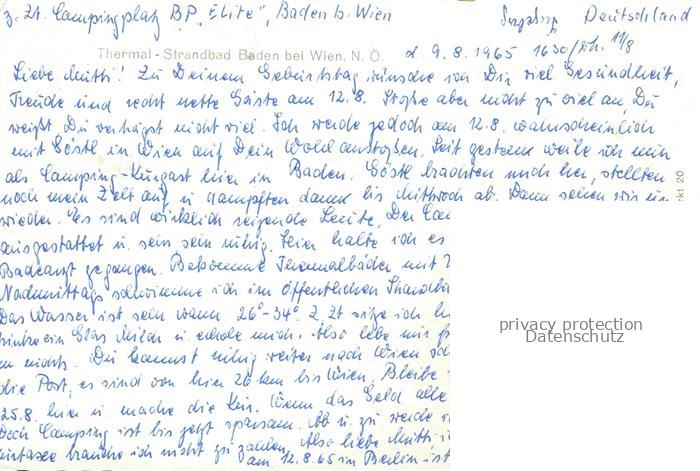 z. Zt. Campingplatz BP „Elite", Baden b. Wien Deutschland
Thermal - Strandbad Baden bei Wien, N. Ö. d. 9.8.1965 1630/ 11/8
Liebe Mutti! Zu Deinem Geburtstag wünsche ich Dir viel Gesundheit,
Freude und recht nette Gäste am 12.8. Stoße aber nicht zu viel an, Du
weißt, Du verträgst nicht viel. Ich werde jedoch am 12.8. wahrscheinlich
mit Göstl in Wien auf Dein Wohl anstoßen. Seit gestern weile ich nun
als Camping-Kurgast hier in Baden. Göstl brachten mich her, stellten
noch mein Zelt auf u. dampften dann bis Mittwoch ab. Dann sehen wir un
wieder. Es sind wirklich reizende Leute. Der Cam
ausgestattet u. sehr sehr ruhig. Hier halte ich es
Badearzt gegangen. Bekomme Thermalbäder mit
Nachmittags schwimme ich im öffentlichen Strandba
Das Wasser ist sehr warm 26°-34°. Z. Zt sitze ich
trinke ein Glas Milch u. erhole mich. Also lebe mir
nichts. Du kannst ruhig weiter nach Wien
die Post, es sind von hier 26 km bis Wien. Bleibe
25.8. hier u. mache die Kur. Wenn das Geld alle
Doch Camping ist bis jetzt sparsam. Ab u. zu werde
Kurtaxe brauche ich nicht zu zahlen. Also liebe Mutti
am 12.8.65 in Berlin ist
rkt 20
privacy protection
Datenschutz